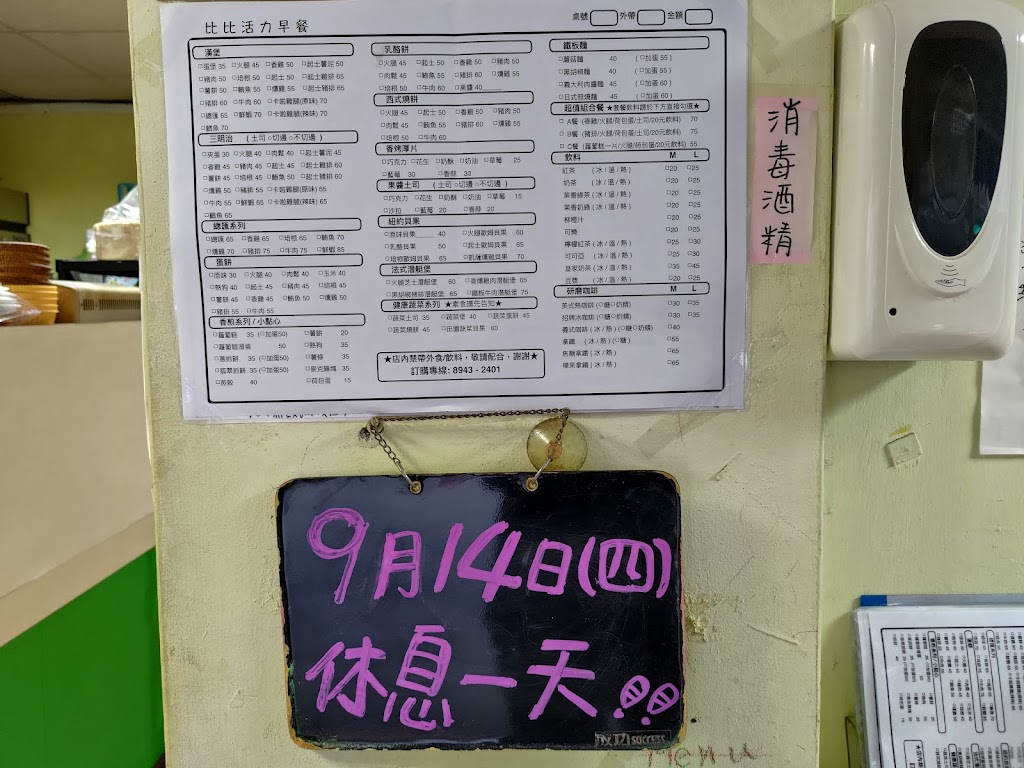 比比活力早餐
桌號 外帶 金額
漢堡
□蛋堡 35 □火腿 45 □香雞 50 □起士薯泥 50
□豬肉 50 □培根 50 □起士 50 □起士香雞 65
□薯餅 50 □鮪魚 55 □燻雞 55 □起士豬排 65
□豬排 60 □牛肉 60 □卡啦雞腿(原味) 70
□總匯 65 □鮮蝦 70 □卡啦雞腿(辣味) 70
□鱈魚 70
三明治 (土司 ○切邊 ○不切邊)
□夾蛋 30 □火腿 40 □肉鬆 40 □起士薯泥 45
□香雞 45 □豬肉 45 □起士 45 □起士豬排 60
□薯餅 45 □培根 45 □鮪魚 50 □起士豬排 60
□燻雞 50 □豬排 55 □卡啦雞腿(原味) 65
□牛肉 55 □鮮蝦 65 □卡啦雞腿(辣味) 65
□鱈魚 65
總匯系列
□總匯 65 □香雞 65 □培根 65 □鮪魚 70
□燻雞 70 □豬排 75 □牛肉 75 □鮮蝦 85
蛋餅
□原味 30 □火腿 40 □肉鬆 40 □玉米 40
□熱狗 40 □起士 40 □豬肉 45 □培根 45
□薯餅 45 □香雞 45 □鮪魚 50 □燻雞 50
□豬排 55 □牛肉 55
香煎系列 / 小點心
□蘿蔔糕 35 (□加蛋50) □薯餅 20
□蘿蔔糕滑蛋 50 □熱狗 35
□蔥抓餅 35 (□加蛋50) □薯條 35
□翡翠抓餅 35 (□加蛋50) □麥克雞塊 35
□煎餃 40 □荷包蛋 15
乳酪餅
□火腿 45 □起士 50 □香雞 50 □豬肉 50
□肉鬆 45 □鮪魚 55 □豬排 60 □燻雞 55
□培根 50 □牛肉 60 □果醬 40
西式燒餅
□火腿 45 □起士 50 □香雞 50 □豬肉 50
□肉鬆 45 □鮪魚 55 □豬排 60 □燻雞 55
□培根 50 □牛肉 60
香烤厚片
□巧克力 □花生 □奶酥 □奶油 □草莓 25
□藍莓 30 □香蒜 30
果醬土司 (土司 ○切邊 ○不切邊)
□巧克力 □花生 □奶酥 □奶油 □草莓 15
□沙拉 □藍莓 20 □香蒜 20
紐約貝果
□原味貝果 40 □火腿歐姆貝果 60
□乳酪貝果 50 □起士歐姆貝果 65
□培根歐姆貝果 65 □凱薩燻雞貝果 70
法式潛艇堡
□火腿芝士潛艇堡 60 □香燻雞肉潛艇堡 65
□黑胡椒豬排潛艇堡 65 □鐵板牛肉潛艇堡 75
健康蔬菜系列 ★素食請先告知★
□蔬菜土司 35 □蔬菜堡 40 □蔬菜蛋餅 45
□蔬菜燒餅 45 □田園蔬菜貝果 60
★店內禁帶外食/飲料，敬請配合，謝謝★
訂購專線: 8943 - 2401
鐵板麵
□蘑菇麵 40 (□加蛋 55)
□黑胡椒麵 40 (□加蛋 55)
□義大利肉醬麵 45 (□加蛋 60)
□日式炒燒麵 45 (□加蛋 60)
超值組合餐 ★套餐飲料請於下方直接勾選★
□A餐 (香雞/火腿/荷包蛋/土司/20元飲料) 70
□B餐 (豬排/火腿/荷包蛋/土司/20元飲料) 75
□C餐 (蘿蔔糕一片/火腿/荷包蛋/20元飲料) 55
飲料 M L
紅茶 (冰 / 溫 / 熱) □20 □25
奶茶 (冰 / 溫 / 熱) □20 □25
茉香綠茶 (冰 / 溫 / 熱) □20 □25
茉香奶綠 (冰 / 溫 / 熱) □20 □25
柳橙汁 □20 □25
可樂 □20 □25
檸檬紅茶 (冰 / 溫 / 熱) □25 □30
可可亞 (冰 / 溫 / 熱) □25 □30
皇家奶茶 (冰 / 溫 / 熱) □35 □45
豆漿 (冰 / 溫 / 熱) □20 □25
研磨咖啡 M L
美式熱咖啡 (□糖□奶精) □30 □35
招牌冰咖啡 (□糖□奶精) □30 □35
義式咖啡 (冰 / 熱) (□糖□奶精) □40
拿鐵 (冰 / 熱) (□糖) □55
焦糖拿鐵 (冰 / 熱) □65
榛果拿鐵 (冰 / 熱) □65
消毒酒精
9月14日(四)
休息一天!!
成功 SUCCESS